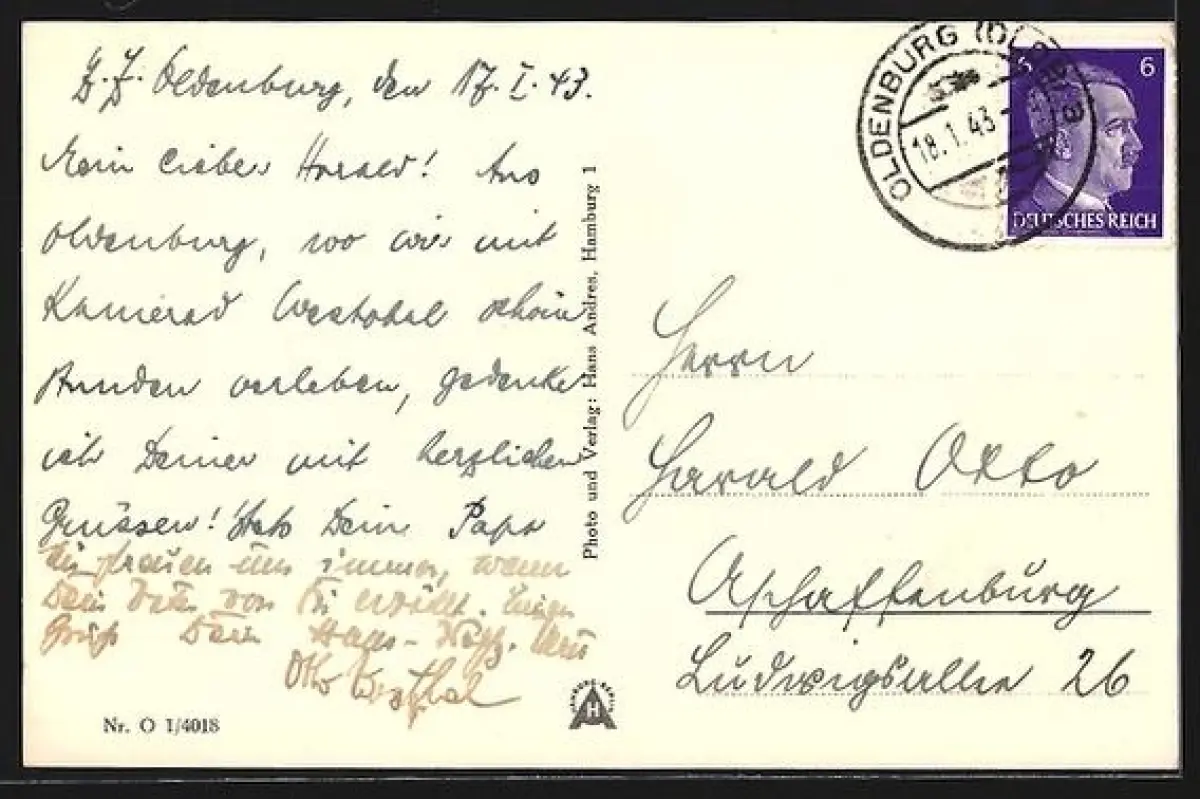 Z. Z. Oldenburg, den 17. I. 43.
Mein lieber Harald! Aus
Oldenburg, wo wir mit
Kamerad Westphal schöne
Stunden verleben, gedenke
ich Deiner mit herzlichen
Grüssen! Stets Dein Papa
freuen uns immer, wenn
Dein Vater von Dir erzählt.
Gruß Dein Hans-
Otto Westphal
Nr. O 1/4018
Photo und Verlag: Hans Andres, Hamburg 1
OLDENBURG (OLDB)
18.1.43
6 6
DEUTSCHES REICH
Herrn
Harald Otto
Aschaffenburg
Ludwigsallee 26
H